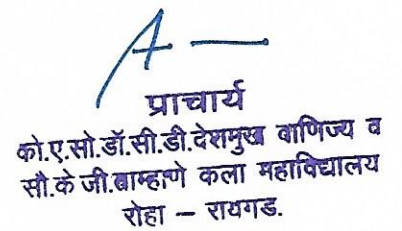 प्राचार्य
को.ए.सो.डॉ.सी.डी.देशमुख वाणिज्य व
सौ.के जी.ताम्हाणे कला महाविद्यालय
रोहा – रायगड.